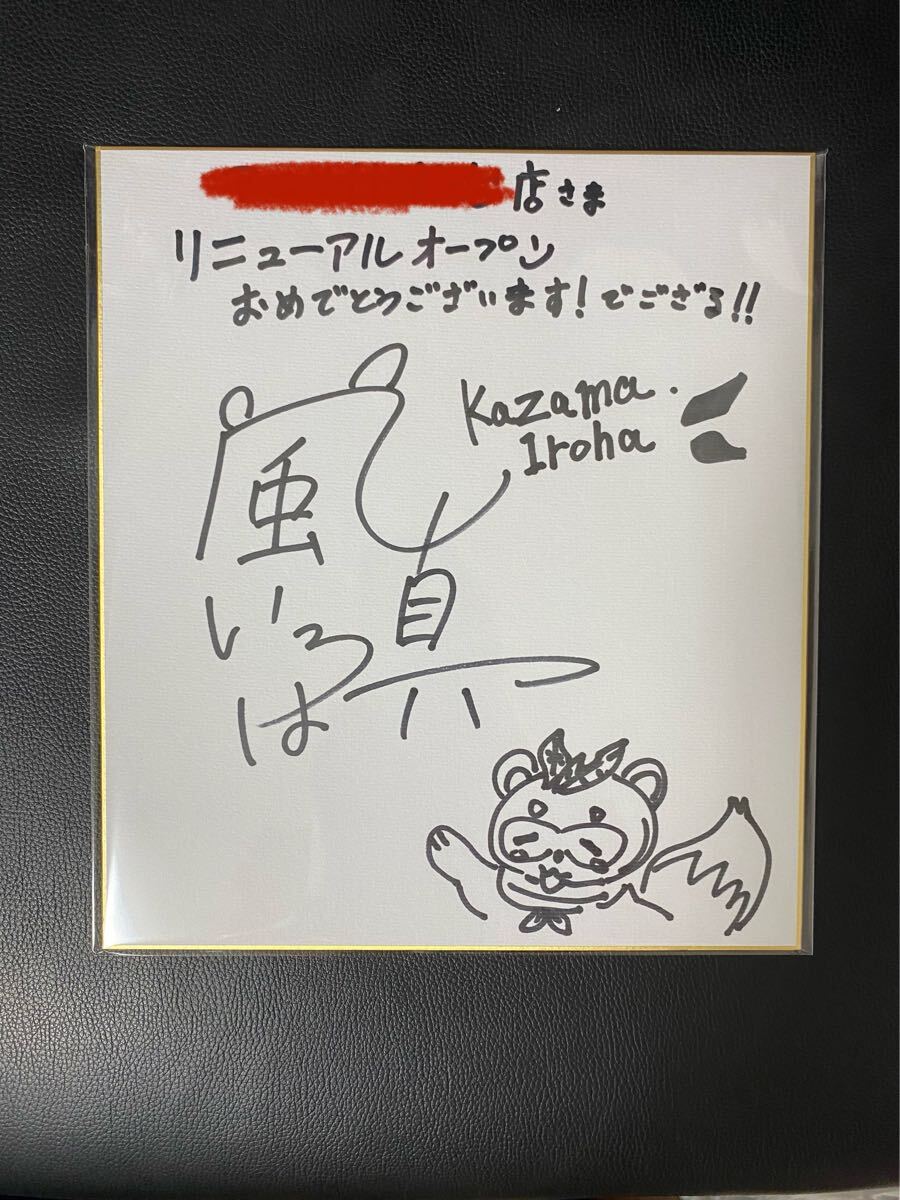 店さま
リニューアルオープン
おめでとうございます！でござる!!
Kazama
Iroha
風真
いろは